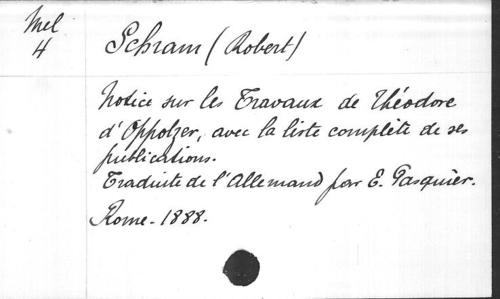 Mel
4
Schram (Robert)
Notice sur les Travaux de Théodore
d'Oppolzer, avec la liste complète de ses
publications.
Traduite de l'Allemand par E. Pasquier.
Rome - 1888.